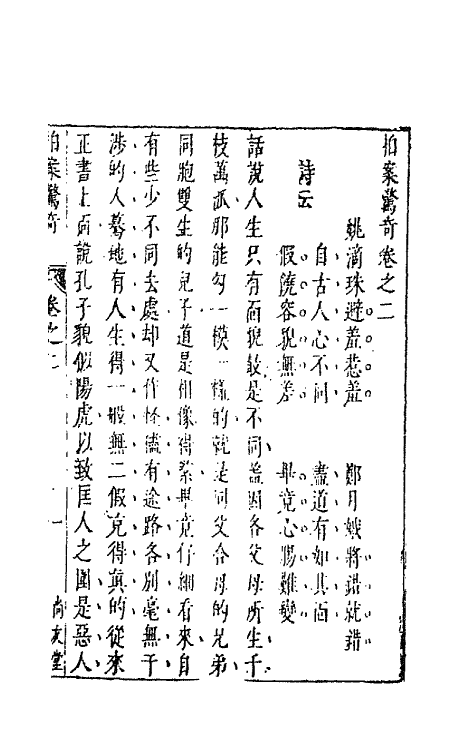 拍案驚奇卷之二
姚滴珠避羞惹羞　鄭月娥將錯就錯
詩云
自古人心不同　盡道有如其面
假饒容貌無差　畢竟心腸難變
話說人生只有面貌最是不同蓋因各父母所生千
枝萬派那能勾一模一樣的就是同父合母的兄弟
同胞雙生的兒子道是相像得緊畢竟仔細看來自
有些少不同去處却又作怪儘有途路各別毫無干
涉的人驀地有人生得一般無二假充得真的從來
正書上面說孔子貌似陽虎以致匡人之圍是惡人
拍案驚奇　卷之二　一　尚友堂